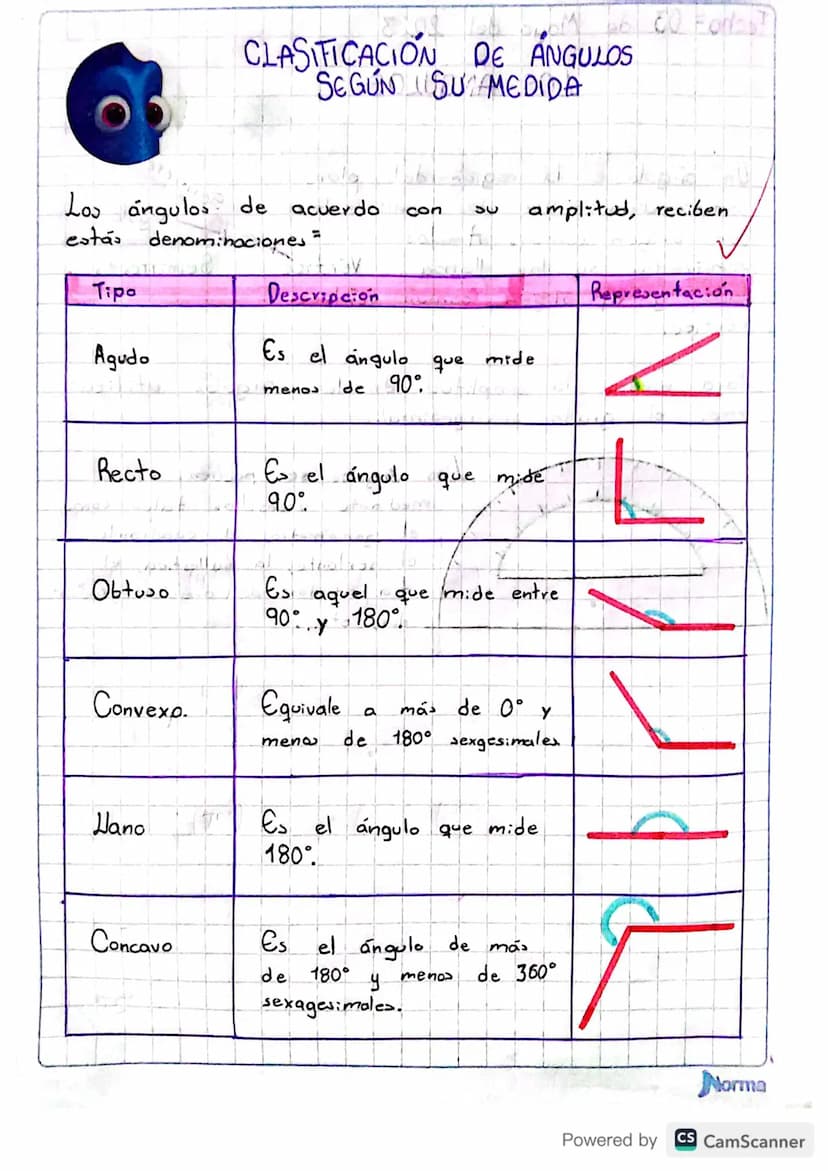 CLASIFICACIÓN DE ÁNGULOS
SEGÚN SU MEDIDA
Los ángulos de acuerdo con su amplitud, reciben
estás denominaciones=
Tipo
Descripción
Representación
Agudo
Es el ángulo que mide
menos de 90°.
Recto
Es el ángulo que mide
90°.
Obtuso
Es aquel que mide entre
90° y 180°.
Convexo.
Equivale a más de 0° y
menos de 180° sexgesimales
Llano
Es el ángulo que mide
180°.
Concavo
Es el ángulo de más
de 180° y menos de 360°
sexagesimales.
Norma
Powered by CS CamScanner